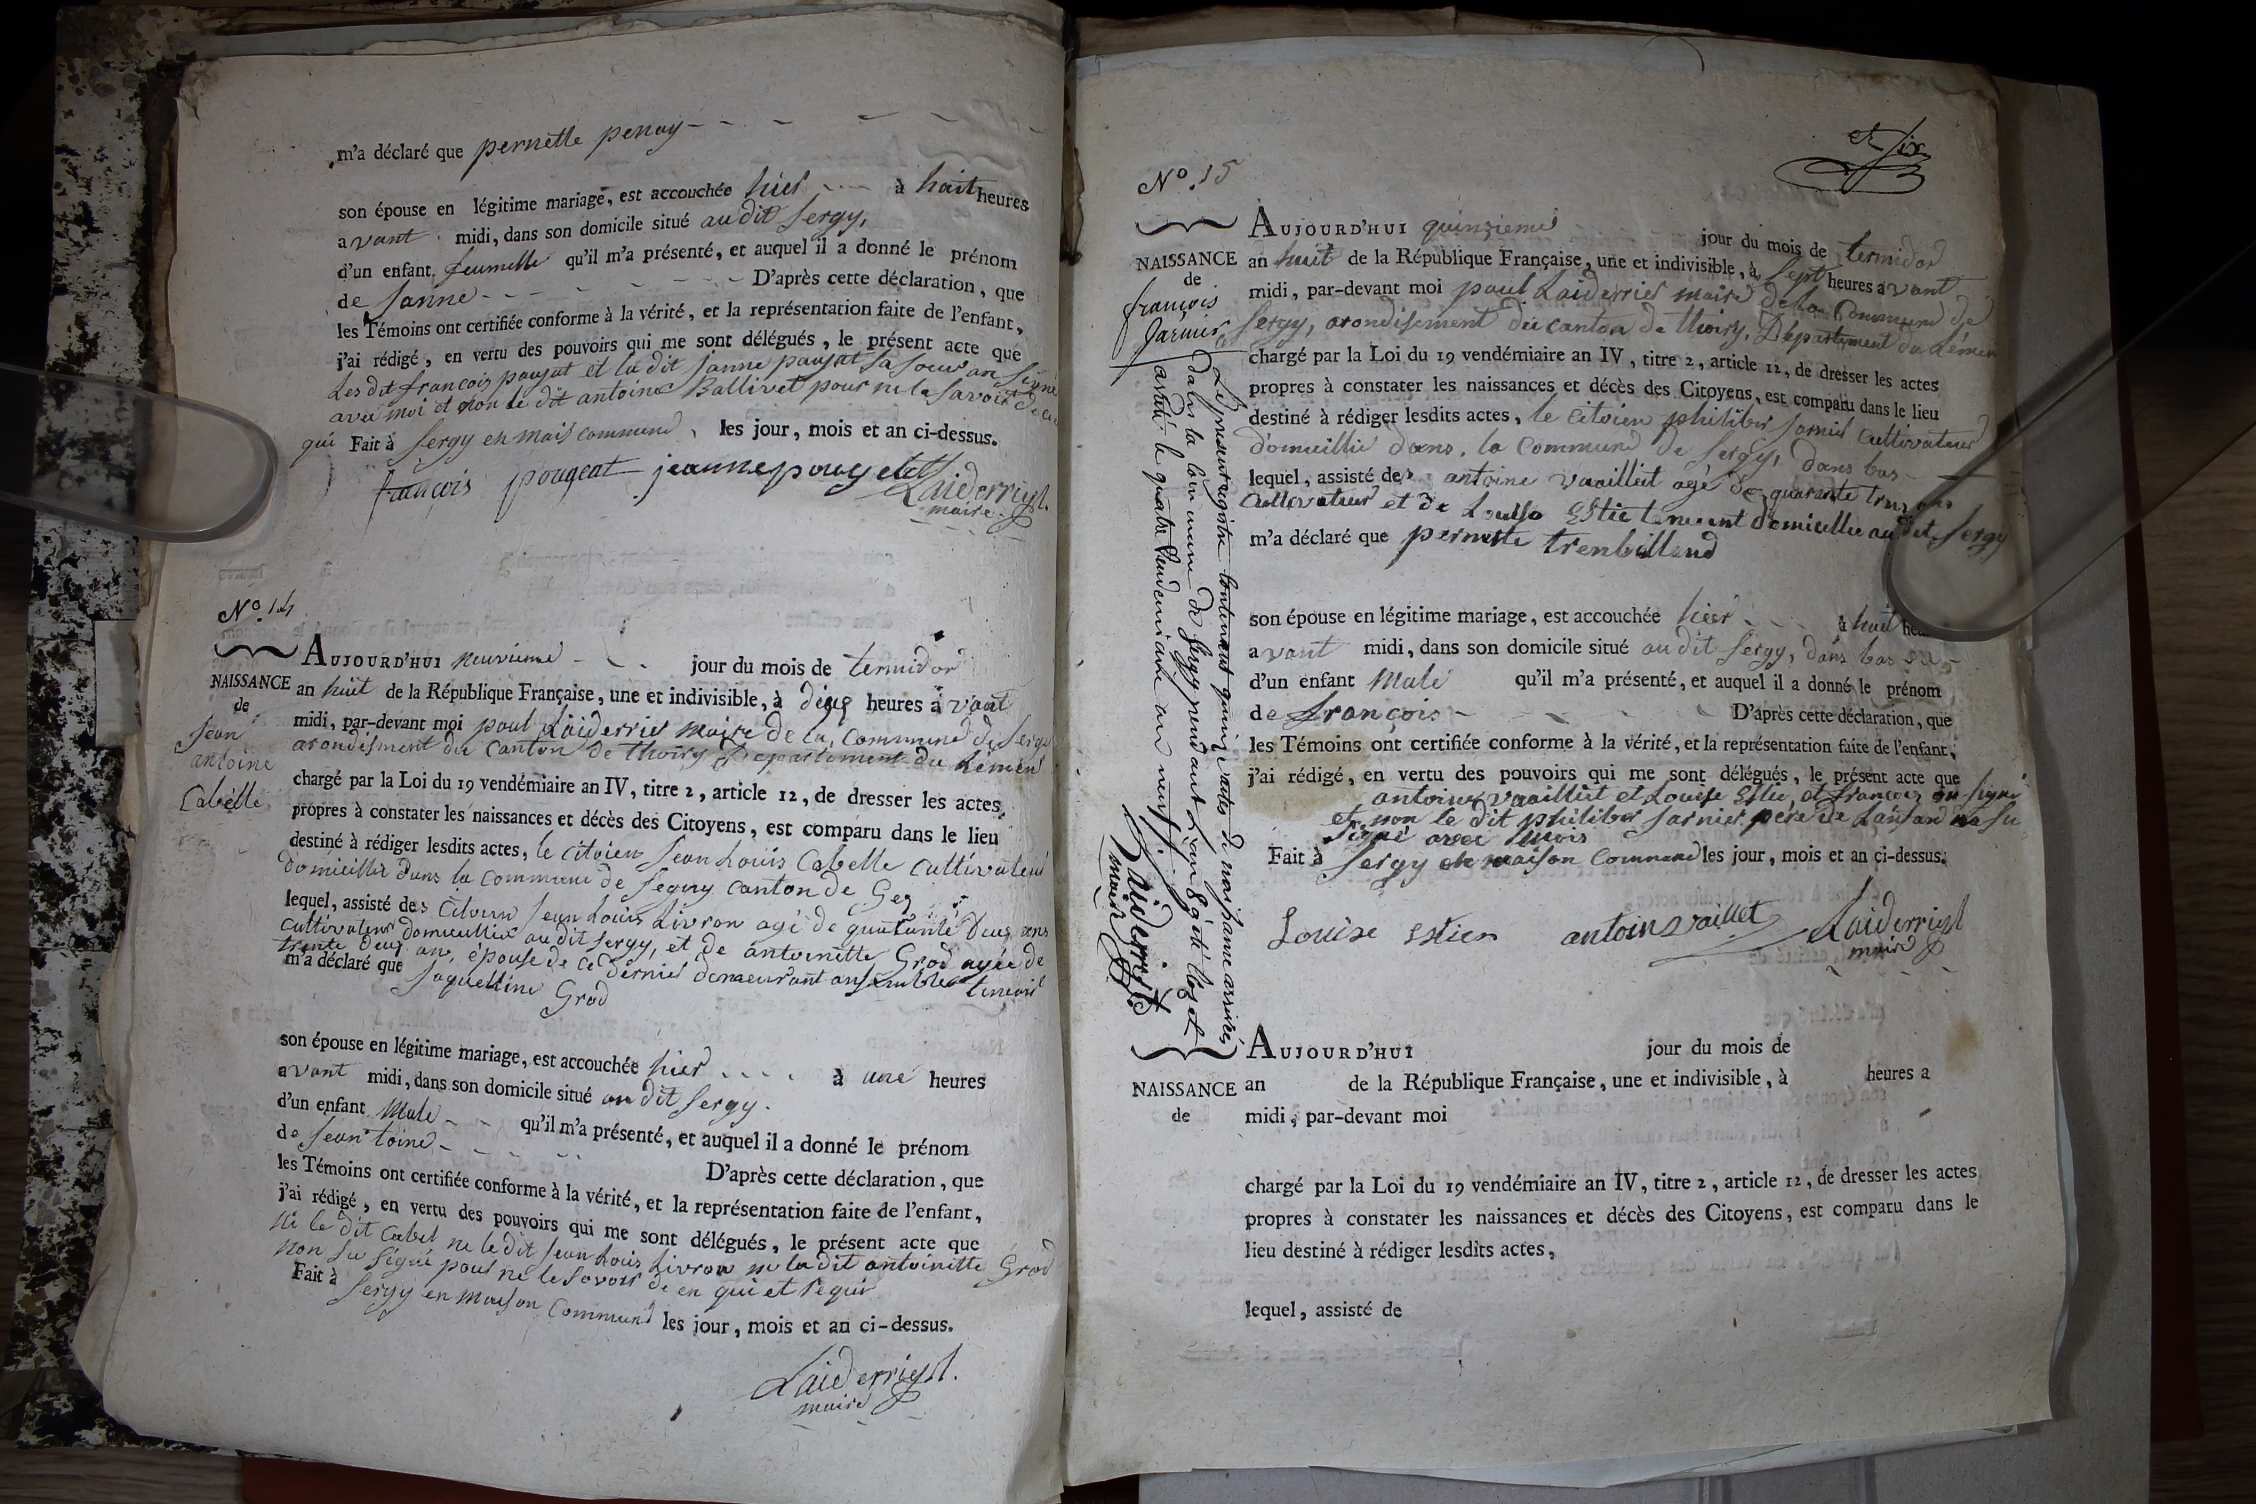 m'a déclaré que pernette penay
son épouse en légitime mariage, est accouchée hier à huit heures
avant midi, dans son domicile situé au dit Sergy,
d'un enfant feumelle qu'il m'a présenté, et auquel il a donné le prénom
de Janne D'après cette déclaration, que
les Témoins ont certifiée conforme à la vérité, et la représentation faite de l'enfant,
j'ai rédigé, en vertu des pouvoirs qui me sont délégués, le présent acte que
Les dit francois poujat et la dit Janne poujat sa soeur on signé
avec moi et non le dit antoine Ballivet pour ne le savoir de en
qui Fait à Sergy en mais commune, les jour, mois et an ci-dessus.
françois pougeat jeanne pougeat Laiderriest.
maire
No. 14
AUJOURD'HUI neuvieme jour du mois de termidor
NAISSANCE an huit de la République Française, une et indivisible, à dieux heures avant
de
Jean
antoine
Cabelle
midi, par-devant moi paul Laiderrier maire de la Commune de Sergy
arondisment du Canton de Thoiry Departement du Lemen
chargé par la Loi du 19 vendémiaire an IV, titre 2, article 12, de dresser les actes
propres à constater les naissances et décès des Citoyens, est comparu dans le lieu
destiné à rédiger lesdits actes, le citoien Jean Louis Cabelle cultivateur
domicillié dans la commune de Segny canton de Gex
lequel, assisté des Citoien Jean Louis Livron agé de quarante deux ans
cultivateur domicillié au dit Sergy, et de antoinette Grod agée de
trente deux an, épouse de ce dernier demeurant ansemble temoins
m'a déclaré que Jaqueline Grod
son épouse en légitime mariage, est accouchée hier à une heures
avant midi, dans son domicile situé au dit Sergy.
d'un enfant Male qu'il m'a présenté, et auquel il a donné le prénom
de Jean toine
D'après cette déclaration, que
les Témoins ont certifiée conforme à la vérité, et la représentation faite de l'enfant,
j'ai rédigé, en vertu des pouvoirs qui me sont délégués, le présent acte que
ni le dit Cabel ne le dit Jean Louis Livron ni la dit antoinette Grod
non su signé pour ne le savoir de en qui et requir
Fait à Sergy en maison Commune les jour, mois et an ci-dessus.
Laiderriest.
maire
et six
No. 15
AUJOURD'HUI quinzieme jour du mois de termidor
NAISSANCE an huit de la République Française, une et indivisible, à sept heures avant
de
françois
Jarnier
midi, par-devant moi paul Laiderrier maire de la Commune de
Sergy, arondisement du canton de thoiry, Departement du Lémen
chargé par la Loi du 19 vendémiaire an IV, titre 2, article 12, de dresser les actes
propres à constater les naissances et décès des Citoyens, est comparu dans le lieu
destiné à rédiger lesdits actes, le citoien philiber Jarnier cultivateur
domicillié dans la commune de Sergy, dans bas
lequel, assisté de antoine vaaillet agé de quarante trois ans
cultivateur et de Louise Estie temoint domicillie au dit Sergy
m'a déclaré que pernette trenbilland
son épouse en légitime mariage, est accouchée hier à huit heures
avant midi, dans son domicile situé au dit Sergy, dans bas
d'un enfant Male qu'il m'a présenté, et auquel il a donné le prénom
de françois D'après cette déclaration, que
les Témoins ont certifiée conforme à la vérité, et la représentation faite de l'enfant,
j'ai rédigé, en vertu des pouvoirs qui me sont délégués, le présent acte que
antoine vaaillet et Louise Estie, et francois on signé
et non le dit philiber Jarnier pere de L'anfan na su
signé avec mois
Fait à Sergy en maison Commune les jour, mois et an ci-dessus.
Louise Estier antoine vaillet Laiderriest
maire
Le présent registre contenant quinze actes de naissance arrivés
dans la commune de Sergy pendant L'an 8 a été clos et
arrêté le quatre vendemiaire an neuf.
Laiderriest
maire
AUJOURD'HUI jour du mois de
NAISSANCE an de la République Française, une et indivisible, à heures a
de midi, par-devant moi
chargé par la Loi du 19 vendémiaire an IV, titre 2, article 12, de dresser les actes
propres à constater les naissances et décès des Citoyens, est comparu dans le
lieu destiné à rédiger lesdits actes,
lequel, assisté de